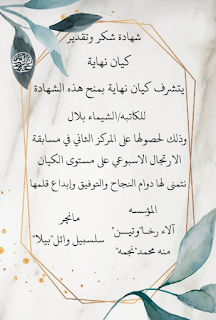 شهادة شكر وتقدير
كيان نهاية
يتشرف كيان نهاية بمنح هذه الشهادة
للكاتبه/الشيماء بلال
وذلك لحصولها على المركز الثاني في مسابقة
الارتجال الاسبوعي على مستوى الكيان
نتمنى لها دوام النجاح والتوفيق وإبداع قلمها
المؤسسه
آلاء رخا"وتيـــن"
منه محمد"نجمه"
مانچر
سلسبيل وائل"بيلا"